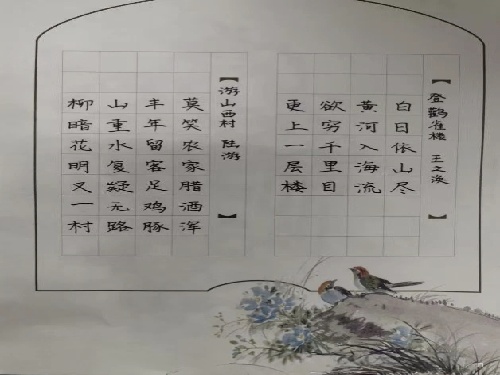 【登鹳雀楼 王之涣】
白日依山尽
黄河入海流
欲穷千里目
更上一层楼
【游山西村 陆游】
莫笑农家腊酒浑
丰年留客足鸡豚
山重水复疑无路
柳暗花明又一村